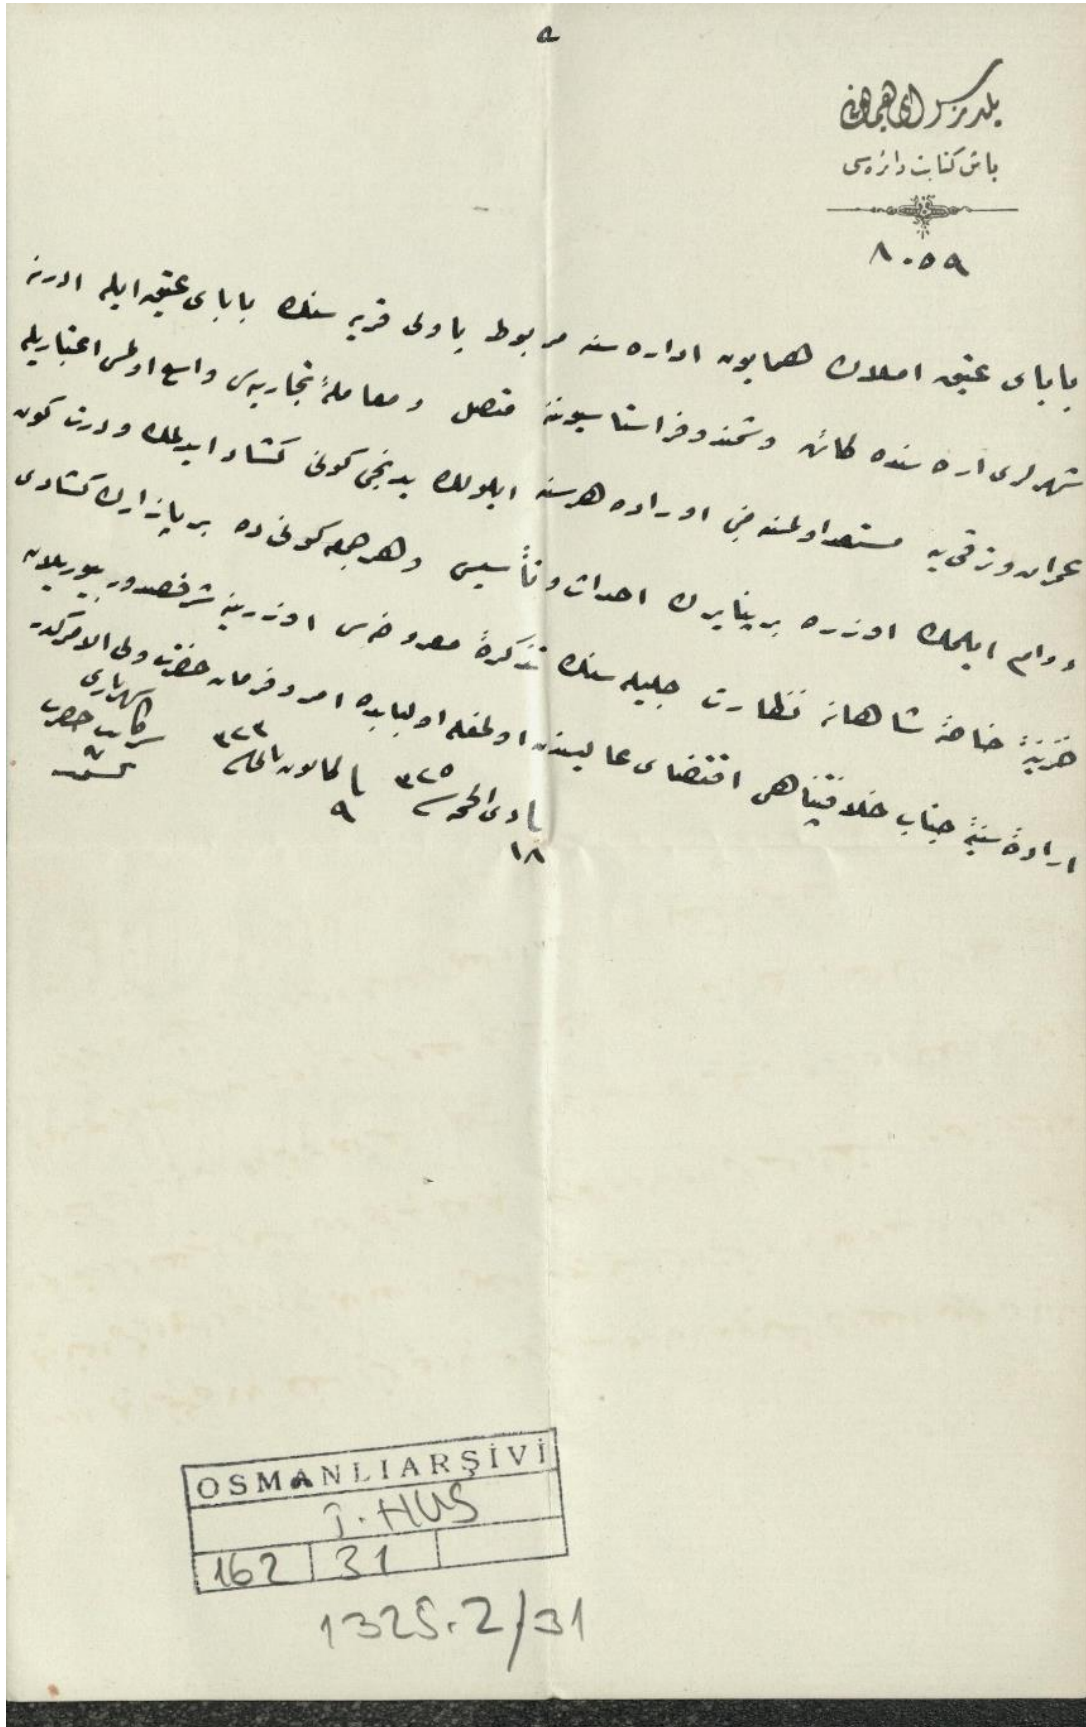 ٥
يلديز سراى همايونى
باش كتابت دائره سى
٨٠٥٩
باباى عتيق املاك همايون اداره سنه مربوط پاولى قريه سنك باباى عتيق ايله ادرنه
شهرلرى اره سنده كائن وشمندوفر استاسيوننه متصل و معامله ٔ تجاريه سى واسع اولمسى اعتباريله
عمران وترقى يه مستعد اولمسنه مبنى اوراده هر سنه ايلولك يدنجى كونى كشاد ايدلمك ودرت كون
دوام ايلمك اوزره بر پناير احداث وتأسيسى و هر جمعه كونى ده بر پازار كشادى
خزينه ٔ خاصه ٔ شاهانه نظارت جليله سنك تذكره ٔ معروضه سى اوزرينه شرفصدور بيوريلان
اراده ٔ سنيه ٔ جناب خلافتپناهى اقتضاى عاليسندن اولمغله اولبابده امر وفرمان حضرت ولى الامركدر
٣٢٥
١٨
٣٢٣
٩
سركاتب حضرت
شهريارى
OSMANLI ARŞİVİ
İ.HUS
162 31
1325.2/31